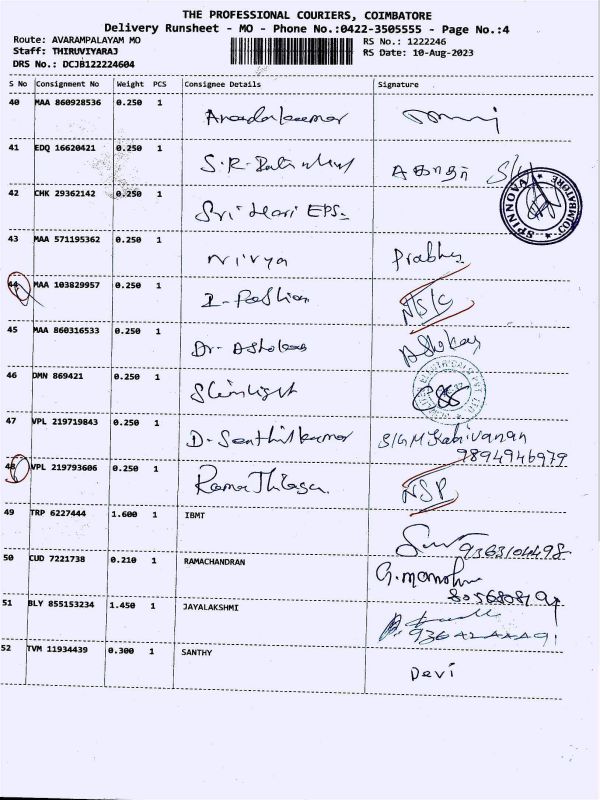 THE PROFESSIONAL COURIERS, COIMBATORE
Delivery Runsheet - MO - Phone No.:0422-3505555 - Page No.:4
Route: AVARAMPALAYAM MO RS No.: 1222246
Staff: THIRUVIYARAJ RS Date: 10-Aug-2023
DRS No.: DCJB122224604
S No Consignment No Weight PCS Consignee Details Signature
40 MAA 860928536 0.250 1
41 EDQ 16620421 0.250 1 S.R.
42 CHK 29362142 0.250 1 Sri Hari EPS.
SPIN COIMBATORE
43 MAA 571195362 0.250 1 Nivya Prabhu
44 MAA 103829957 0.250 1 I-Fashion
45 MAA 860316533 0.250 1 Dr. Ashokan Ashokan
46 DMN 869421 0.250 1 Slimlight
47 VPL 219719843 0.250 1 D. Senthilkumar
9894946979
48 VPL 219793606 0.250 1 Rama Thilaga NSP
49 TRP 6227444 1.600 1 IBMT
9363104498
50 CUD 7221738 0.210 1 RAMACHANDRAN G.manohar
51 BLY 855153234 1.450 1 JAYALAKSHMI
52 TVM 11934439 0.300 1 SANTHY Devi